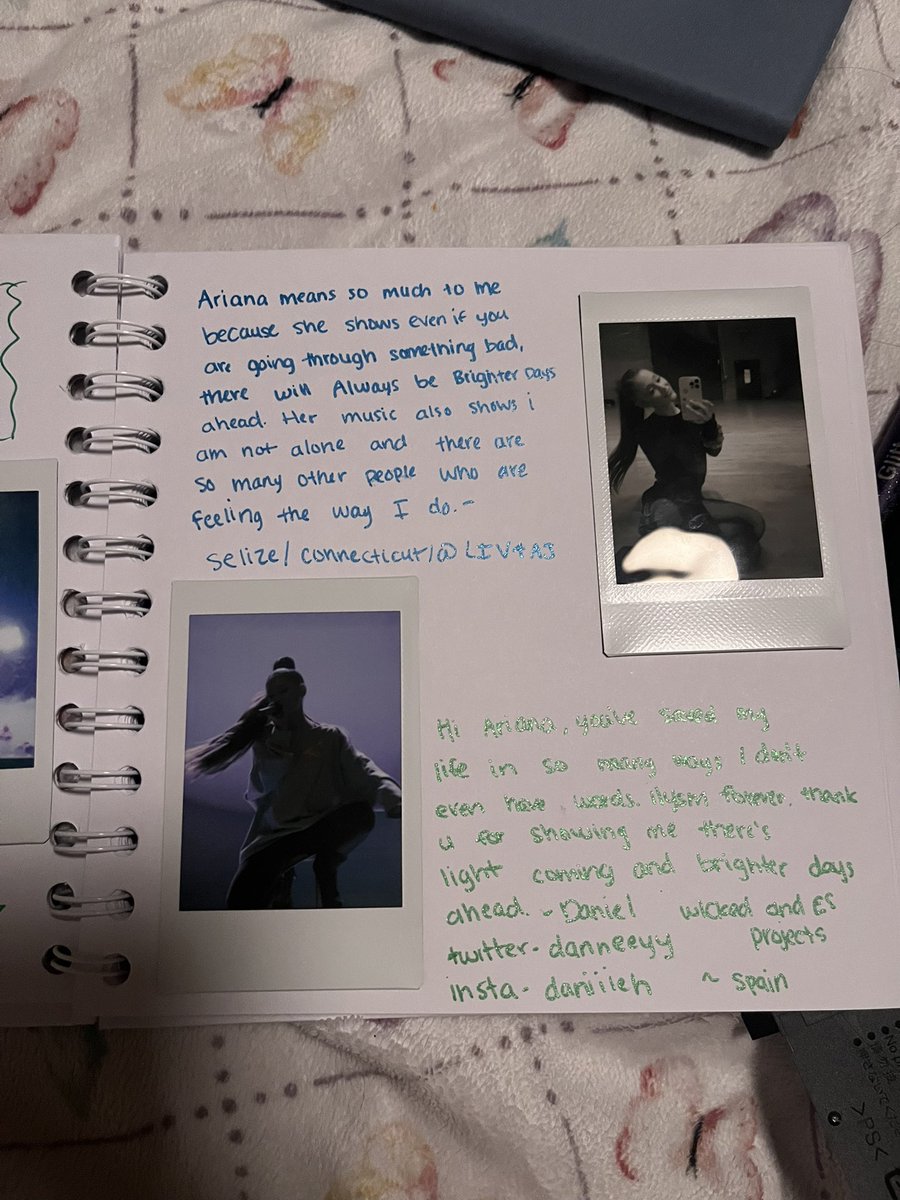 Ariana means so much to me
because she shows even if you
are going through something bad,
there will Always be Brighter Days
ahead. Her music also shows i
am not alone and there are
so many other people who are
feeling the way I do.-
selize/ connecticut/@LIV4AJ
Hi Ariana, you've saved my
life in so many ways I don't
even have words. ilysm forever. thank
u for showing me there's
light coming and brighter days
ahead. - Daniel wicked and ES
projects
twitter- danneeyy
insta- daniiieh ~ spain